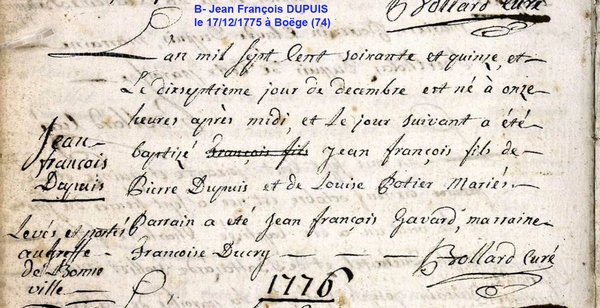 B- Jean François DUPUIS
le 17/12/1775 à Boëge (74)
Brollard Curé
Lan mil Sept Cent Soixante et quinze, et
Le dixseptieme jour de decembre est né à onze
heures après midi, et le jour suivant a été
baptizé françois fils Jean françois fils de
Pierre Dupuis et de Louise Potier Mariés
Parrain a eté Jean françois Gavard, marraine
Francoise Ducry
Brollard Curé
Jean
françois
Dupuis
Levés et portés
au greffe
de Bonne
ville
1776